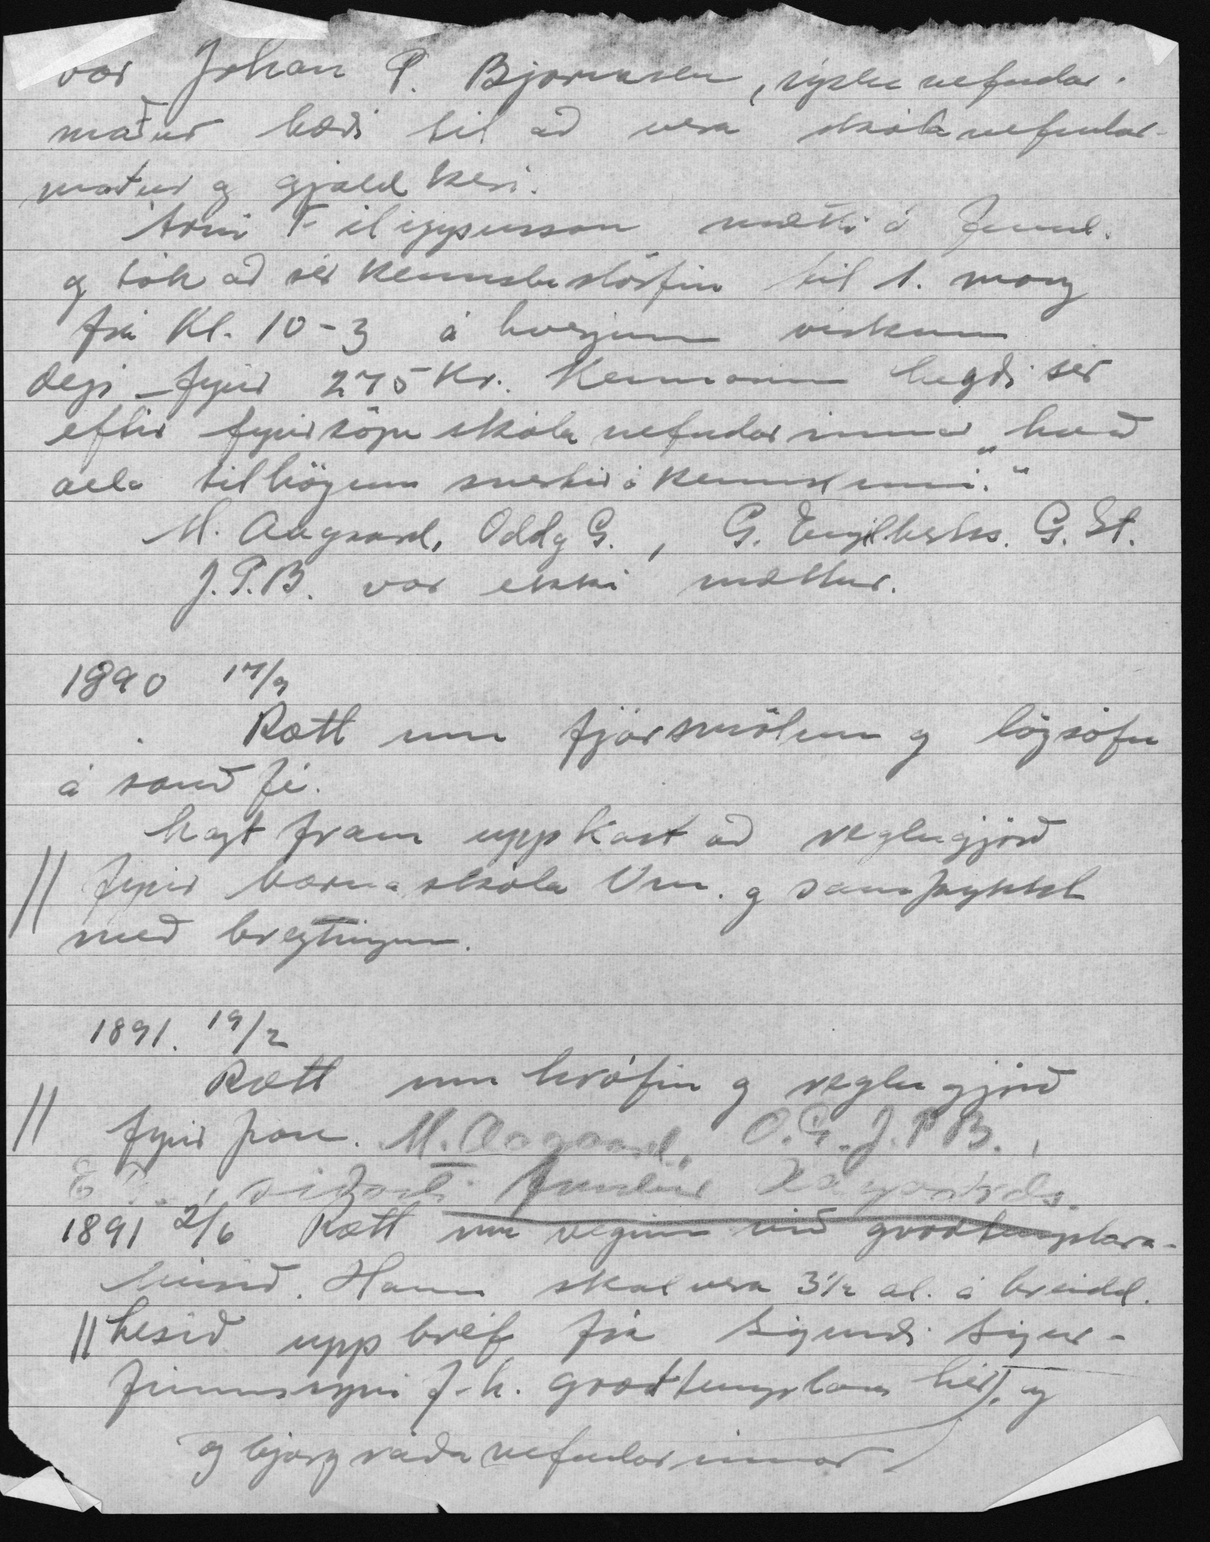 var Johan P. Bjarnasen, sýslunefndar-
maður bæði til að vera skólanefndar-
maður og gjaldkeri.
Árni Filippusson mætti á fund.
og tók að sér kennslustörfin til 1. marz
frá Kl. 10-3 á hverjum virkum
degi fyrir 275 Kr. Kennarinn hegði sér
eftir fyrirsögn skólanefndarinnar „hvað
alla tilhögun snertir á kennslunni."
M. Aagaard, Oddg G., G. Engilberts. G. St.
J.P.B. var ekki mættur.
1890 17/9
Rætt um fjársmölun og lögsöfn
á sauðfé.
Lagt fram uppkast að reglugjörð
fyrir barnaskóla Vm. og samþykkt
með breytingum.
1891. 19/2
Rætt um hrófin og reglugjörð
fyrir þau. M. Aagaard, O.G. J.P.B.,
síðasti fundur Aagaards.
1891 2/6 Rætt um veginn við goodtemplara-
húsið. Hann skal vera 3 1/2 al. á breidd.
Lesið upp bréf frá Sigurði Sigur-
finnssyni f.h. goodtemplara hér, og
og bjargráðanefndarinnar